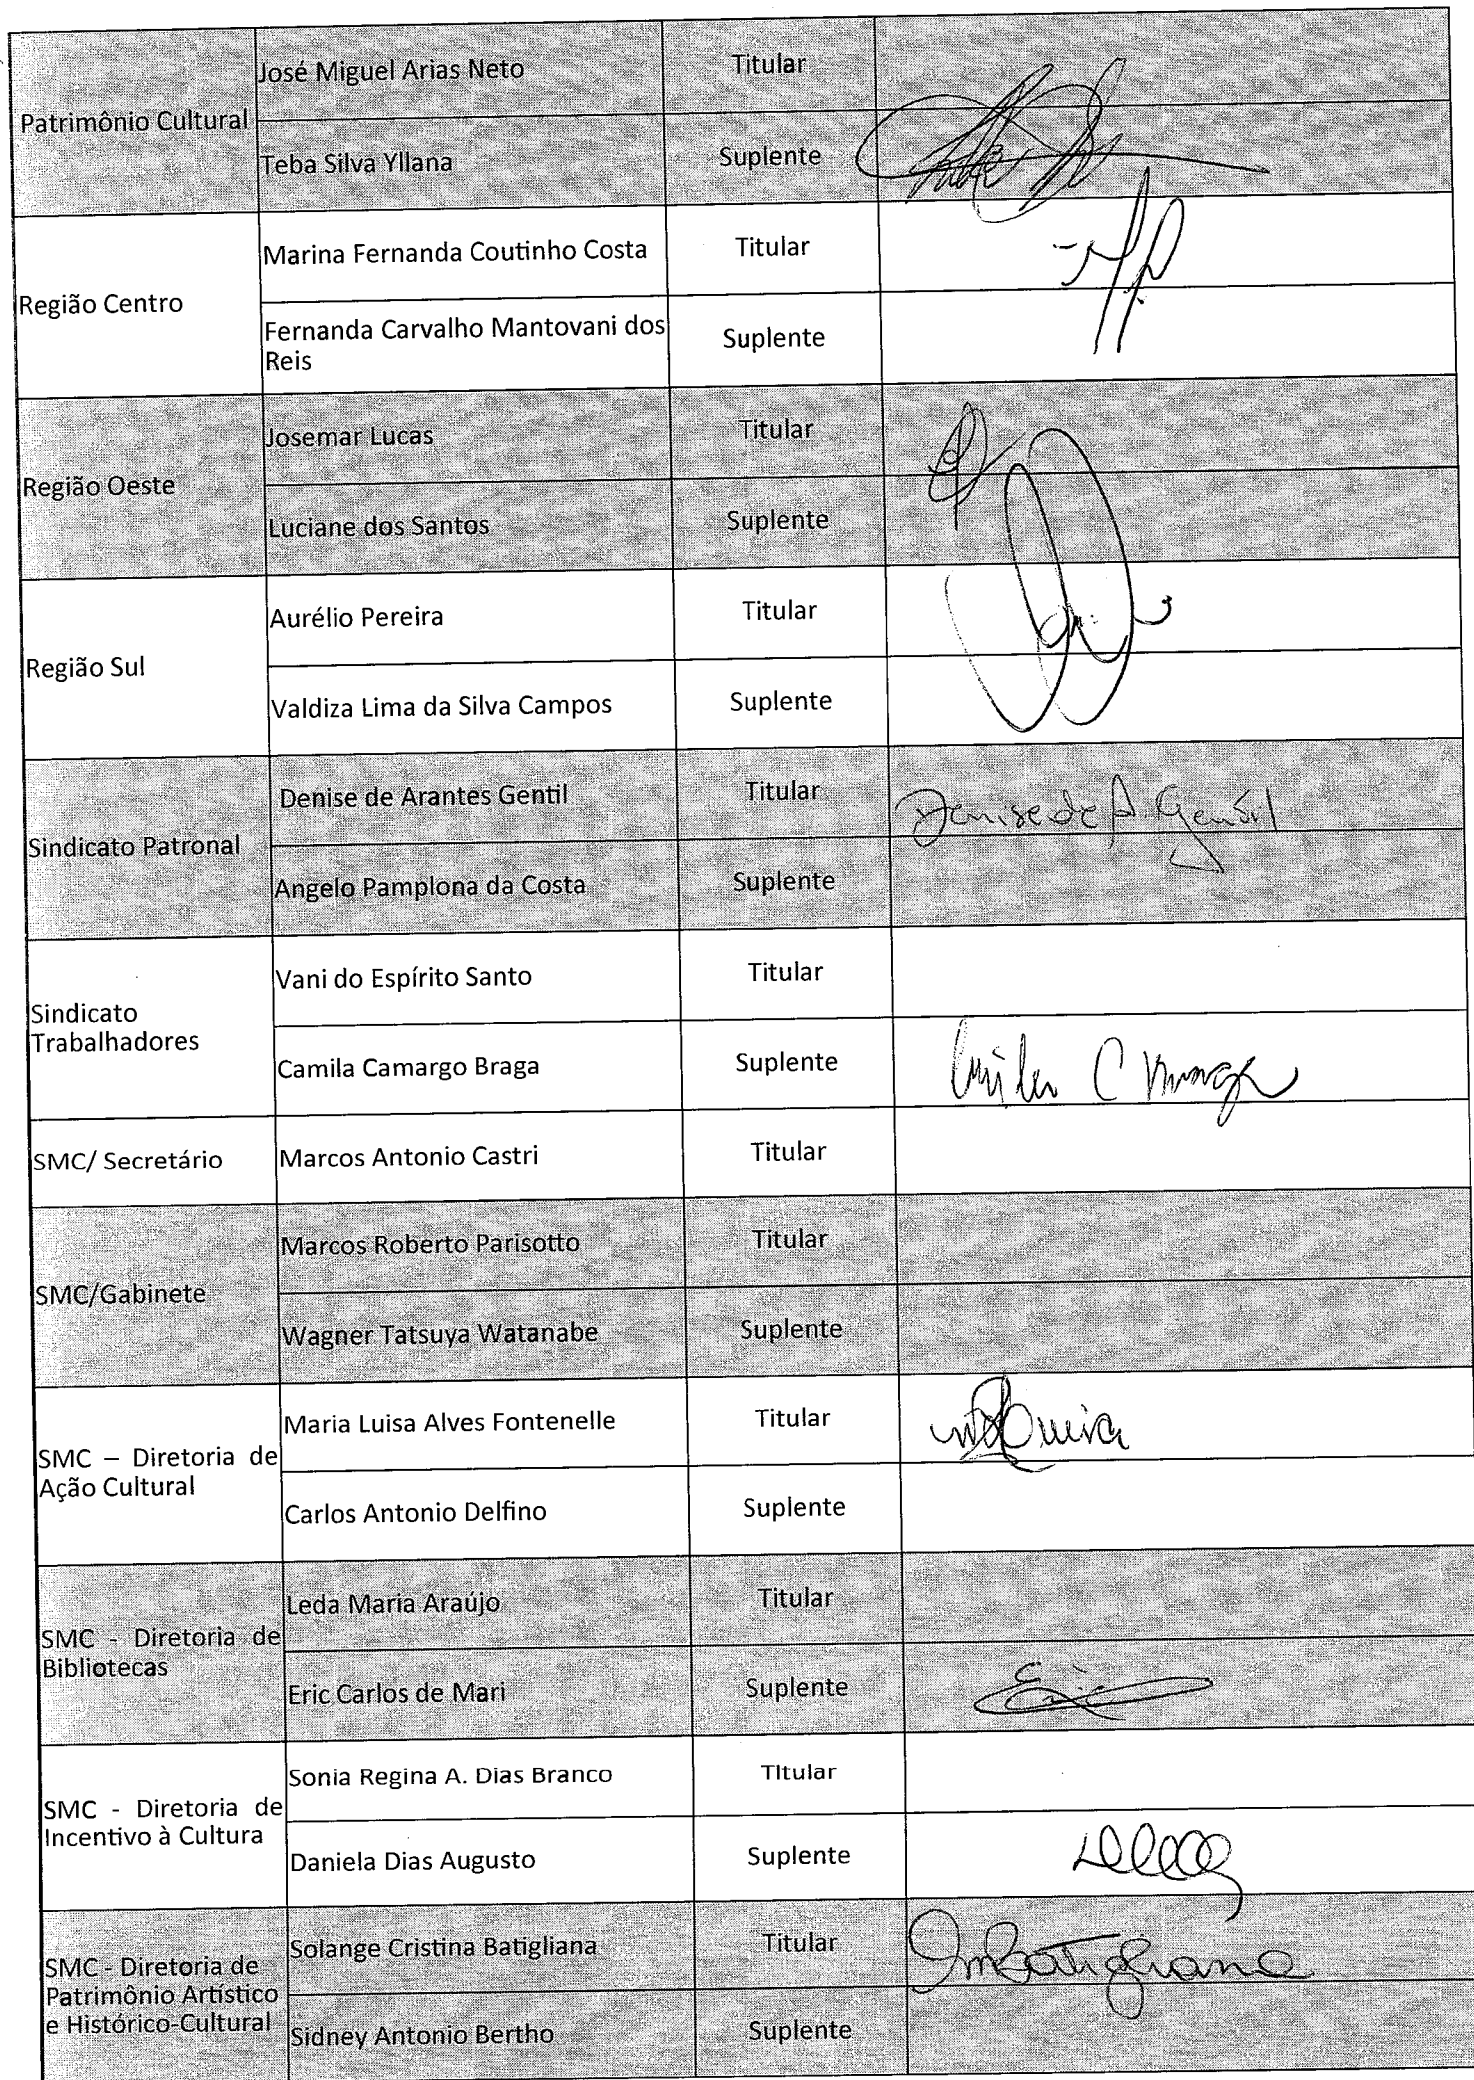 Patrimônio Cultural
José Miguel Arias Neto
Titular
Teba Silva Yllana
Suplente
Região Centro
Marina Fernanda Coutinho Costa
Titular
Fernanda Carvalho Mantovani dos
Reis
Suplente
Região Oeste
Josemar Lucas
Titular
Luciane dos Santos
Suplente
Região Sul
Aurélio Pereira
Titular
Valdiza Lima da Silva Campos
Suplente
Sindicato Patronal
Denise de Arantes Gentil
Titular
Denise de A Gentil
Angelo Pamplona da Costa
Suplente
Sindicato
Trabalhadores
Vani do Espírito Santo
Titular
Camila Camargo Braga
Suplente
SMC/ Secretário
Marcos Antonio Castri
Titular
SMC/Gabinete
Marcos Roberto Parisotto
Titular
Wagner Tatsuya Watanabe
Suplente
SMC – Diretoria de
Ação Cultural
Maria Luisa Alves Fontenelle
Titular
Carlos Antonio Delfino
Suplente
SMC - Diretoria de
Bibliotecas
Leda Maria Araújo
Titular
Eric Carlos de Mari
Suplente
Eric
SMC - Diretoria de
Incentivo à Cultura
Sonia Regina A. Dias Branco
Titular
Daniela Dias Augusto
Suplente
SMC - Diretoria de
Patrimônio Artístico
e Histórico-Cultural
Solange Cristina Batigliana
Titular
Batigliana
Sidney Antonio Bertho
Suplente